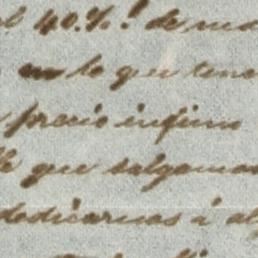 al 40.%! de
en lo que tene
precio infimo
que salgamos
dedicarnos á al